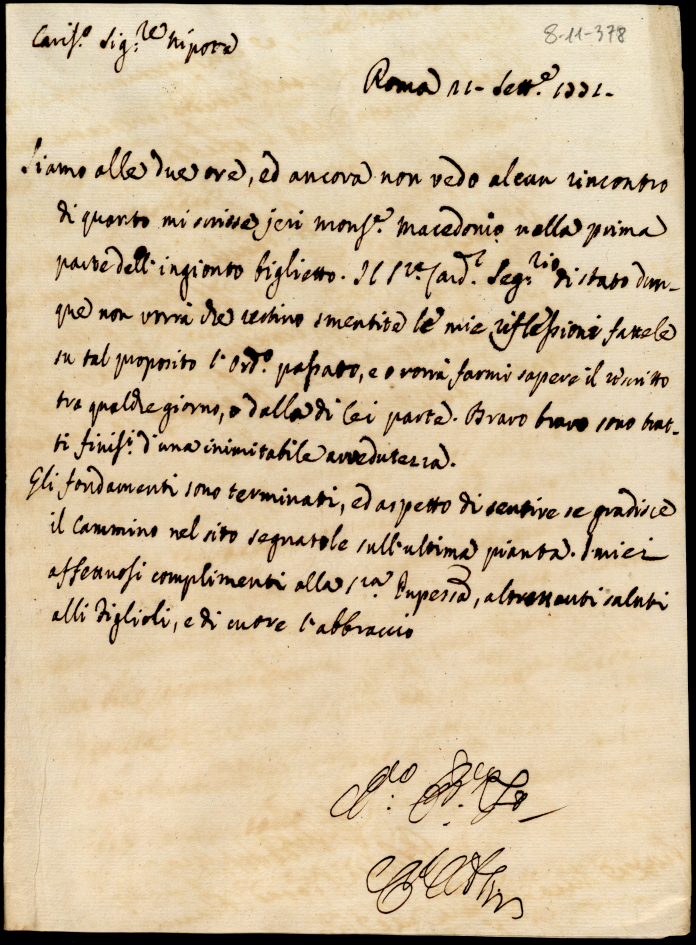 8-11-378
Caris.o Sig.re Nipote
Roma 21. Sett.e
Siamo alle due ore, ed ancora non vedo alcun rincontro
di quanto mi scrisse jeri Mons.r Macedonio nella prima
parte dell'ingionto biglietto. Il Card.l Seg.rio di stato dun-
que non vorrà che restino smentite le mie riflessioni fattele
su tal proposito l'ord.o passato, e o vorrà farmi sapere il rescritto
tra qualche giorno, o dalla di lei parte. Bravo bravo sono trat-
ti finis.i d'una inimitabile avvedutezza.
Gli fondamenti sono terminati, ed aspetto di sentire se gradisce
il Cammino nel sito segnatole sull'ultima pianta. I miei
affettuosi complimenti alla altrettanti saluti
alli Figlioli, e di cuore l'abbraccio